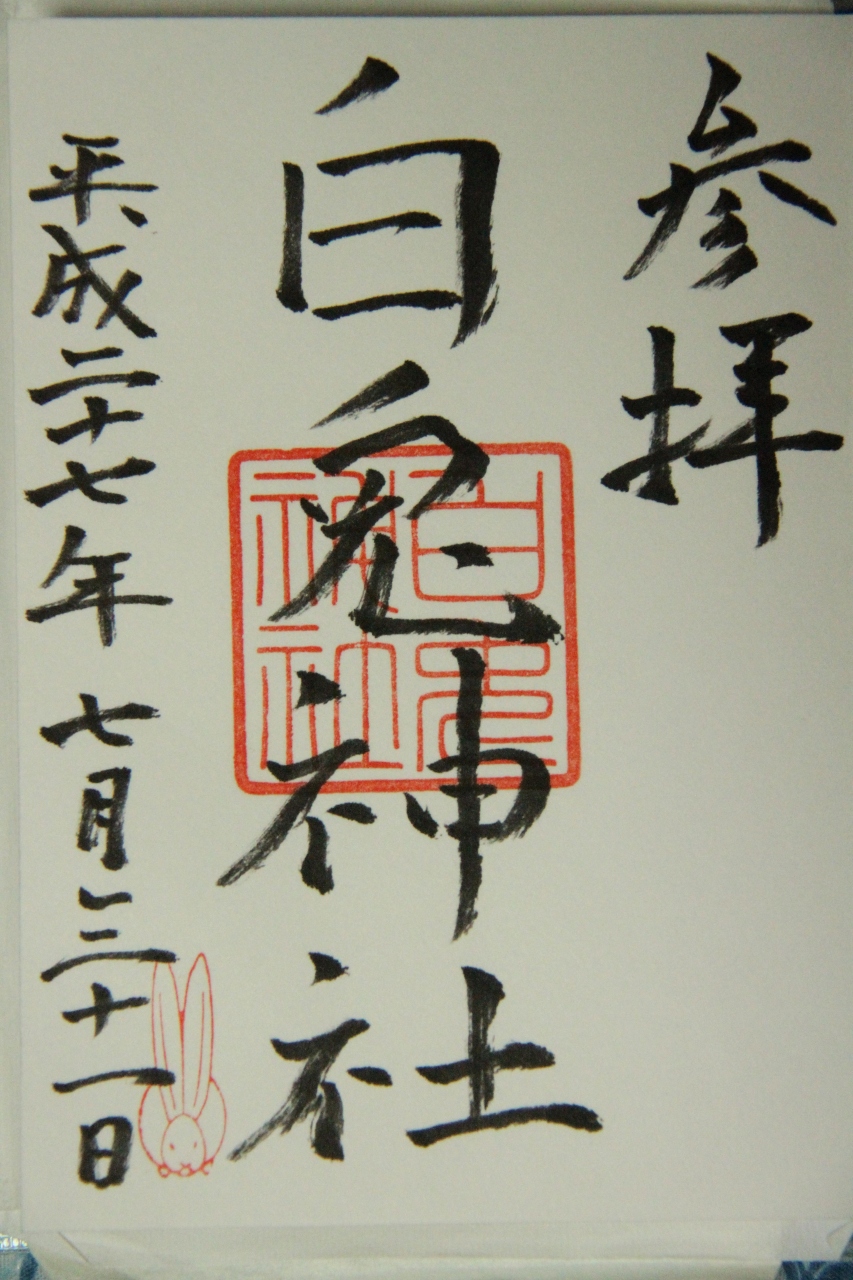 参拝
白兎神社
白兎神社
平成二十七年 七月三十一日